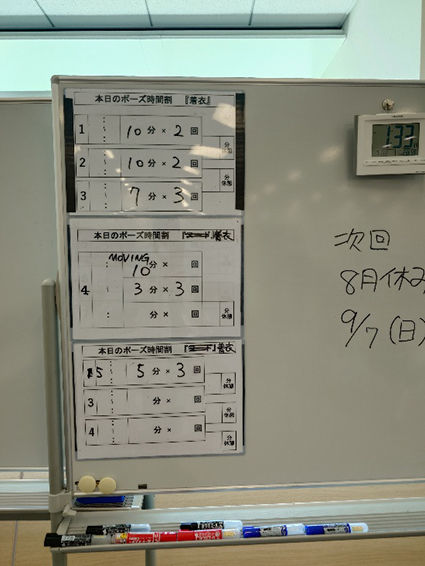 本日のポーズ時間割 『着衣』
1 10分 × 2 回
2 10分 × 2 回
分休憩
3 7分 × 3 回
本日のポーズ時間割 着衣
MOVING
10分 × 回
4 3分 × 3回
分 × 回
分休憩
本日のポーズ時間割 着衣
5 5分 × 3回
分休憩
3 分 × 回
分休憩
4 分 × 回
分休憩
次回
8月休み
9/7(日)